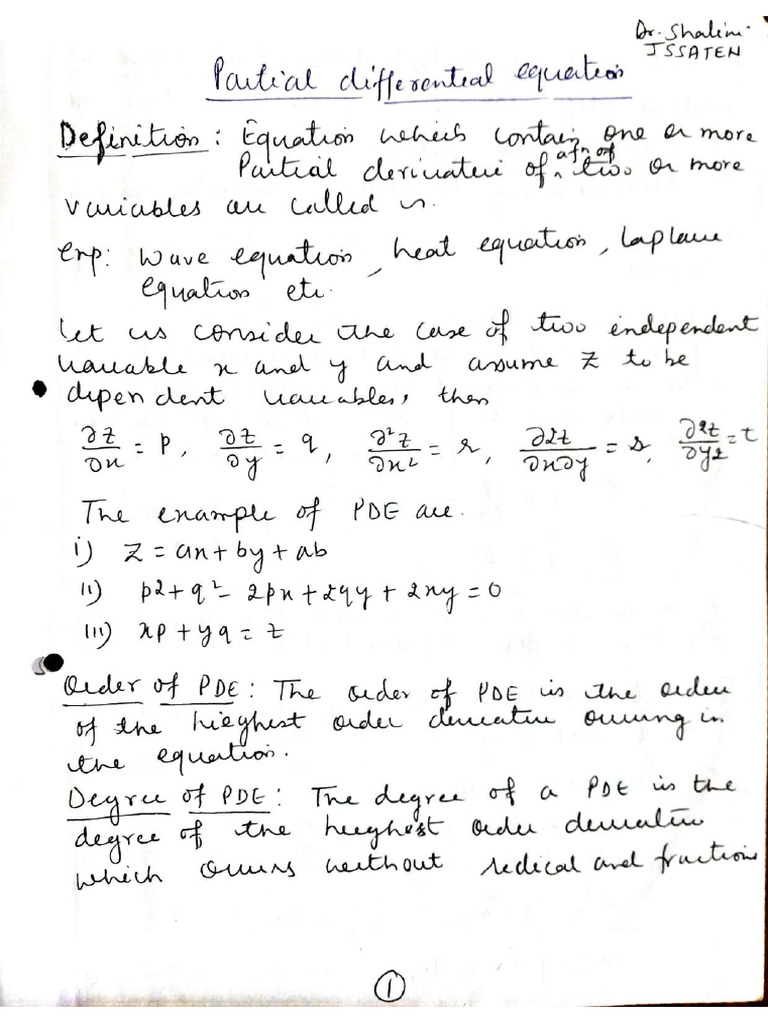 Dr. Shalini
JSSATEN
Partial differential equation
Definition: Equation which contains one or more
Partial derivative of a fn of two or more
variables are called
exp: Wave equation, heat equation, Laplace
equation etc.
Let us consider the case of two independent
variable x and y and assume z to be
dependent variables, then
∂z/∂x = p, ∂z/∂y = q, ∂²z/∂x² = r, ∂²z/∂x∂y = s, ∂²z/∂y² = t
The example of PDE are.
i) z = ax + by + ab
ii) p² + q² - 2px + 2qy + 2xy = 0
iii) xp + yq = z
Order of PDE: The order of PDE is the order
of the hieghest order derivative occuring in
the equation.
Degree of PDE: The degree of a PDE is the
degree of the heeghest order derivative
which occurs without redical and fractions
1